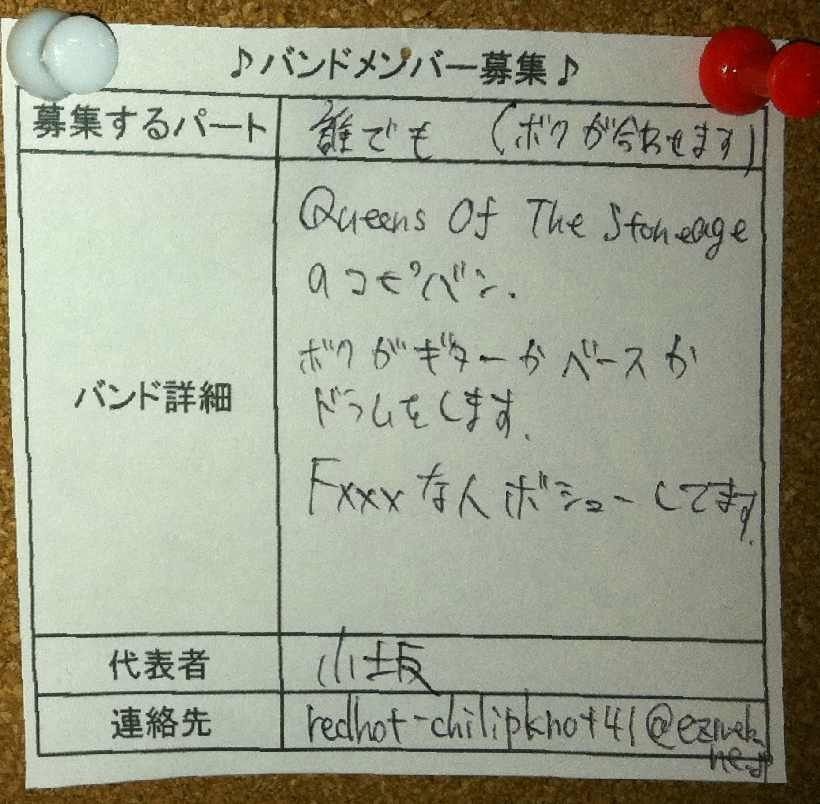 ♪バンドメンバー募集♪
募集するパート 誰でも (ボクが合わせます)
Queens Of The Stoneage
のコピバン.
ボクがギターかベースか
バンド詳細 ドラムをします.
Fxxxな人ボシューしてます.
代表者 小坂
連絡先 redhot-chilipknot41@ezweb.
ne.jp